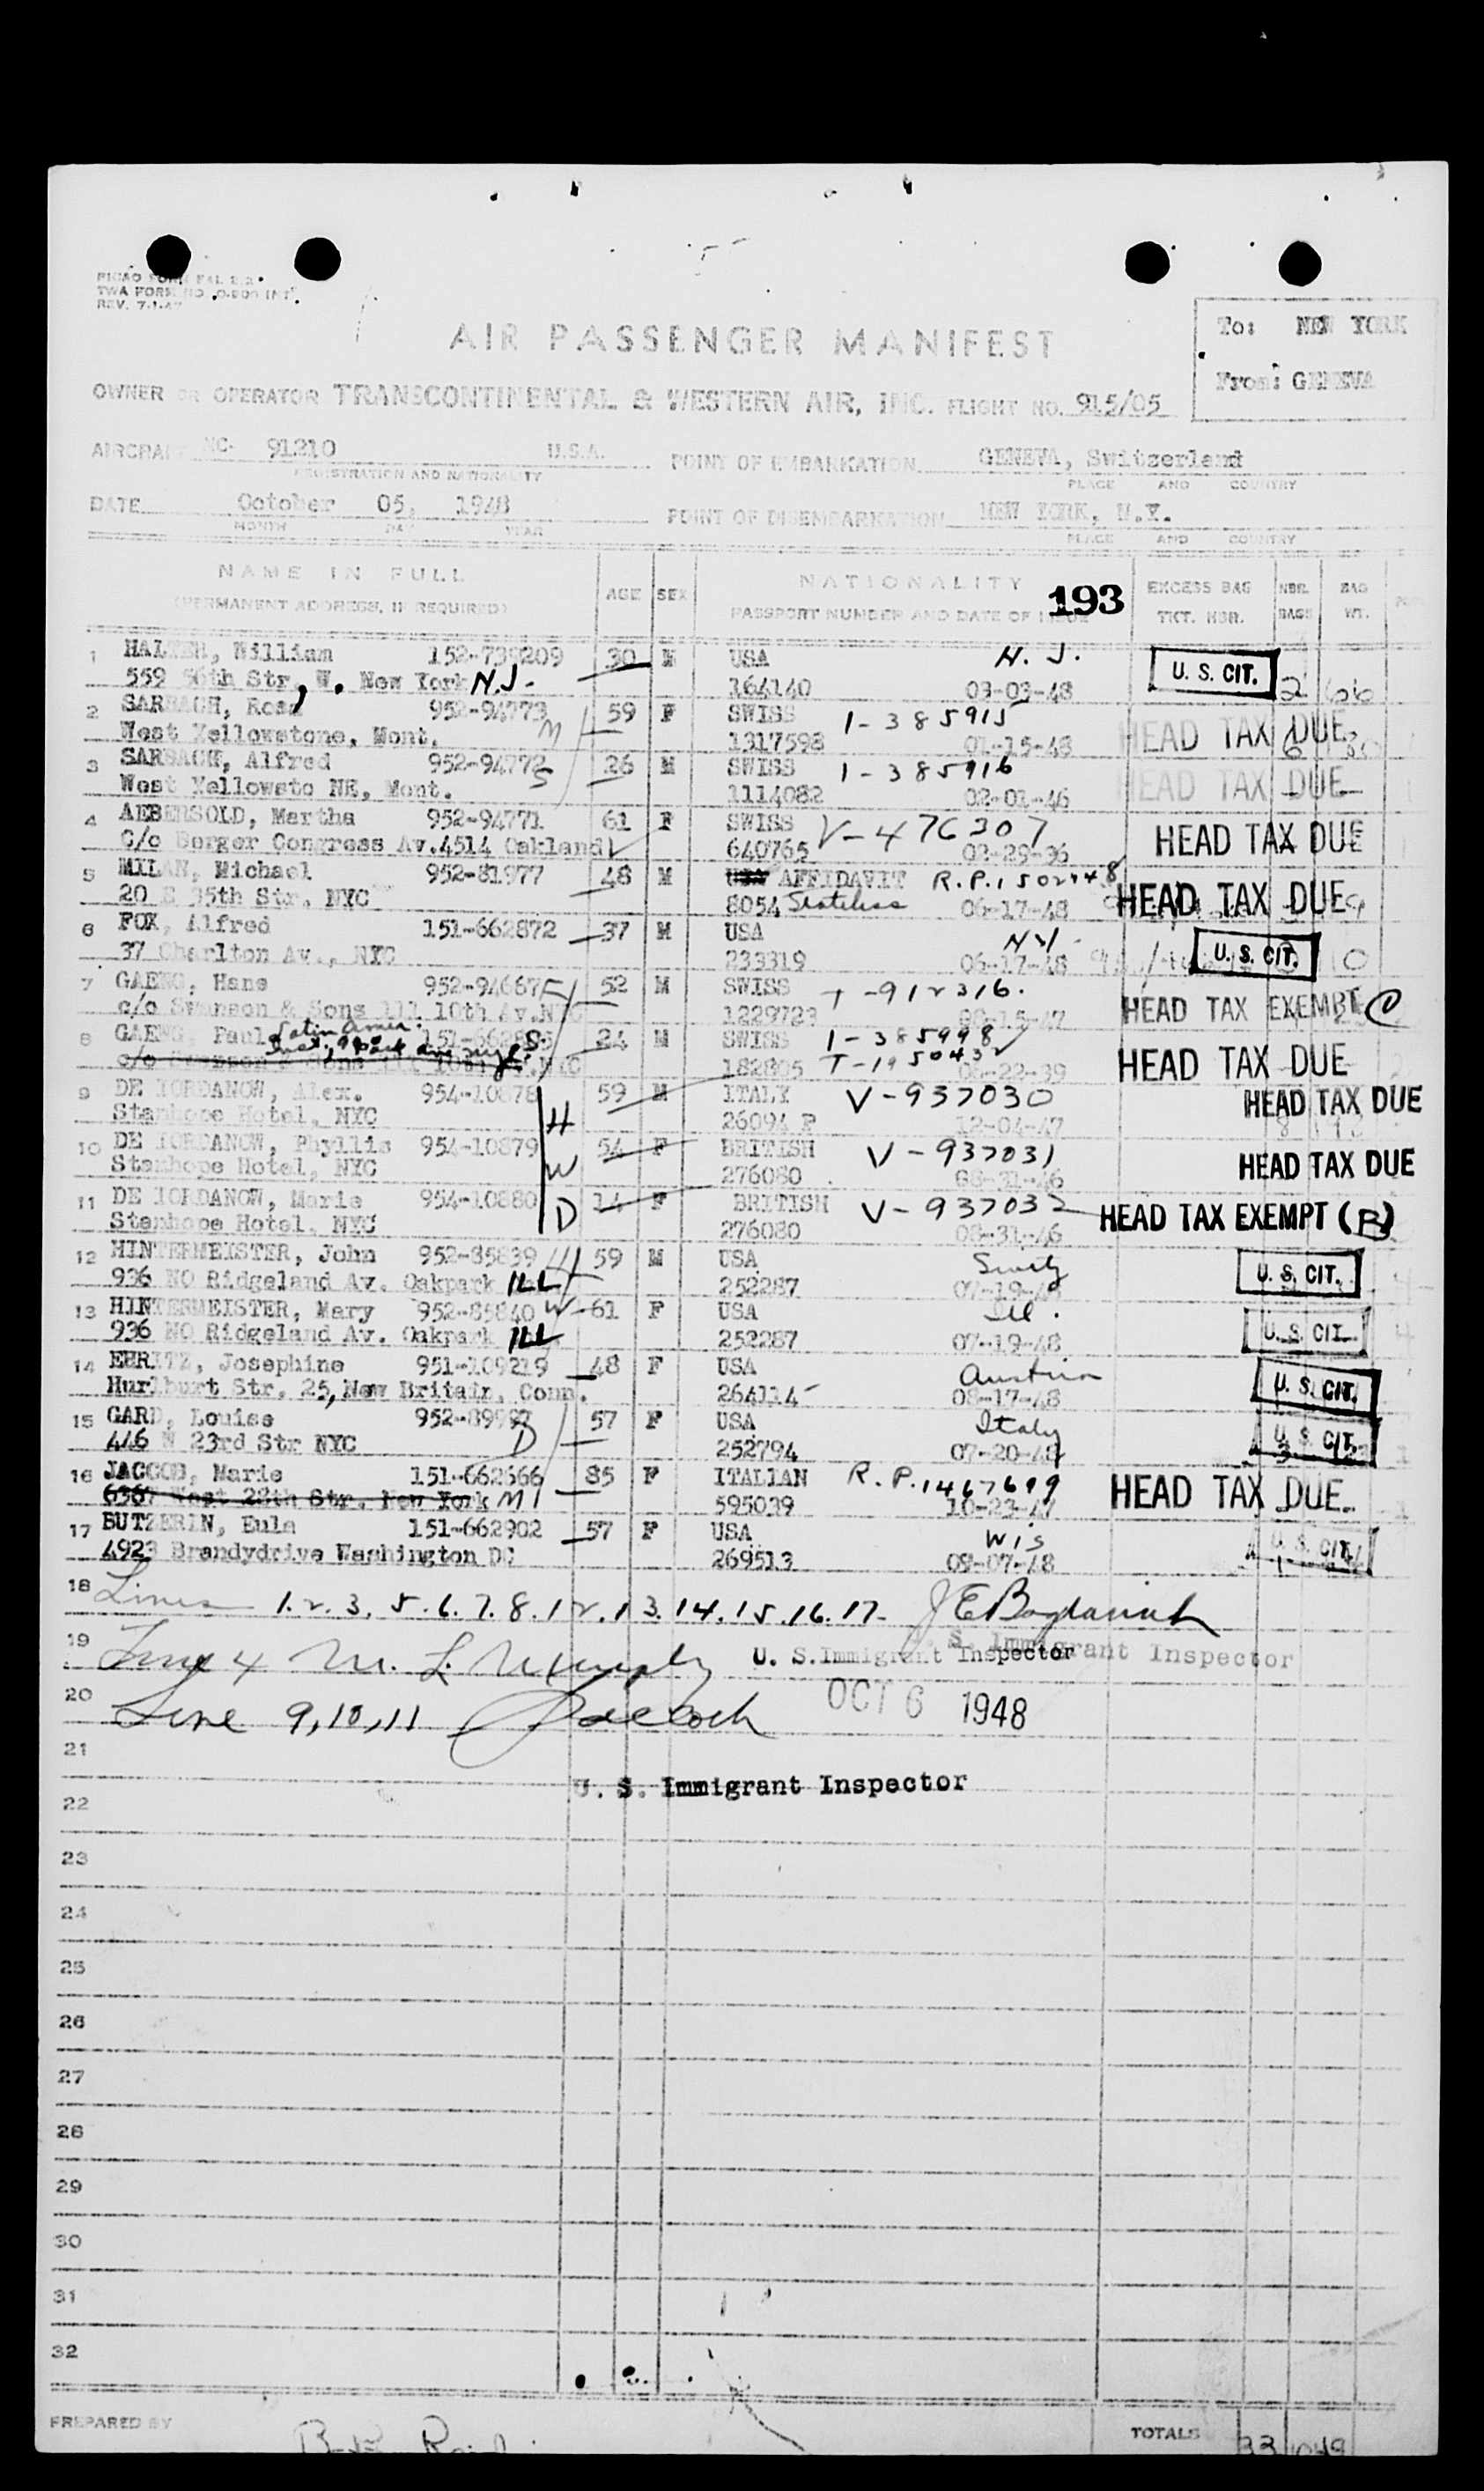 TWA FORM
REV. 7-1-47
AIR PASSENGER MANIFEST
To: NEW YORK
From: GENEVA
OWNER OR OPERATOR TRANSCONTINENTAL & WESTERN AIR, INC. FLIGHT NO. 915/05
AIRCRAFT NC- 91210 U.S.A. POINT OF EMBARKATION GENEVA, Switzerland
REGISTRATION AND NATIONALITY PLACE AND COUNTRY
DATE October 05, 1948 POINT OF DISEMBARKATION NEW YORK, N.Y.
MONTH DAY YEAR PLACE AND COUNTRY
NAME IN FULL AGE SEX NATIONALITY 193 EXCESS BAG NBR. BAG
(PERMANENT ADDRESS, IF REQUIRED) PASSPORT NUMBER AND DATE OF ISSUE TKT. NBR. BAGS WT.
1 HALTER, William 152-739209 30 M USA N.J. U.S. CIT.
559 56th Str, W. New York N.J. 164140 03-03-48 2 66
2 SARBACH, Rosa 952-94773 M 59 F SWISS 1-385915 HEAD TAX DUE
West Yellowstone, Mont. 1317598 01-15-48
3 SARBACH, Alfred 952-94772 S 26 M SWISS 1-385916 HEAD TAX DUE
West Yellowsto NE, Mont. 1114082 02-01-46
4 AEBERSOLD, Martha 952-94771 61 F SWISS V-476307 HEAD TAX DUE
C/o Berger Congress Av.4514 Oakland 640765 02-29-36
5 MILAN, Michael 952-81977 48 M USA AFFIDAVIT R.P.1502448 HEAD TAX DUE
20 E 35th Str, NYC 8054 Stateless 06-17-48
6 FOX, Alfred 151-662872 37 M USA NY U.S. CIT.
37 Charlton Av., NYC 233319 05-17-48 10
7 GAENG, Hans 952-94667 F 52 M SWISS T-912316. HEAD TAX EXEMPT C
c/o Swanson & Sons 111 10th Av.NYC 1229723 08-15-47
8 GAENG, Paul Latin Amer. S 24 M SWISS 1-385998 HEAD TAX DUE
Inst., 9 Park Ave NYC 182805 T-1950432 08-22-39
9 DE IORDANOW, Alex. 954-10878 H 59 M ITALY V-937030 HEAD TAX DUE
Stanhope Hotel, NYC 26094 P 12-04-47
10 DE IORDANOW, Phyllis 954-10879 W 54 F BRITISH V-937031 HEAD TAX DUE
Stanhope Hotel, NYC 276080 08-31-46
11 DE IORDANOW, Marie 954-10880 D 14 F BRITISH V-937032 HEAD TAX EXEMPT (B)
Stanhope Hotel, NYC 276080 08-31-46
12 HINTERMEISTER, John 952-85839 H 59 M USA U.S. CIT.
936 NO Ridgeland Av. Oakpark ILL 252287 07-19-48
13 HINTERMEISTER, Mary 952-85840 W 61 F USA Ill. U.S. CIT.
936 NO Ridgeland Av. Oakpark ILL 252287 07-19-48
14 EHRITZ, Josephine 951-109219 48 F USA Austria U.S. CIT.
Hurlburt Str, 25, New Britain, Conn. 264114 08-17-48
15 GARD, Louise 952-89997 D 57 F USA Italy U.S. CIT.
446 W 23rd Str NYC 252794 07-20-48
16 JACCOD, Marie 151-662666 85 F ITALIAN R.P.1467699 HEAD TAX DUE
6367 West 28th Str. New York M 1 595039 10-23-47
17 BUTZERIN, Eula 151-662902 57 F USA Wis U.S. CIT.
4923 Brandydrive Washington DC 269513 09-07-48
18 Lines 1.2.3.5.6.7.8.12.13.14.15.16.17. J E Bogdanich
19 Line 4 M. L. Murphy U. S. Immigrant Inspector
20 Line 9,10,11 OCT 6 1948
21
U. S. Immigrant Inspector
22
23
24
25
26
27
28
29
30
31
32
PREPARED BY TOTALS 33